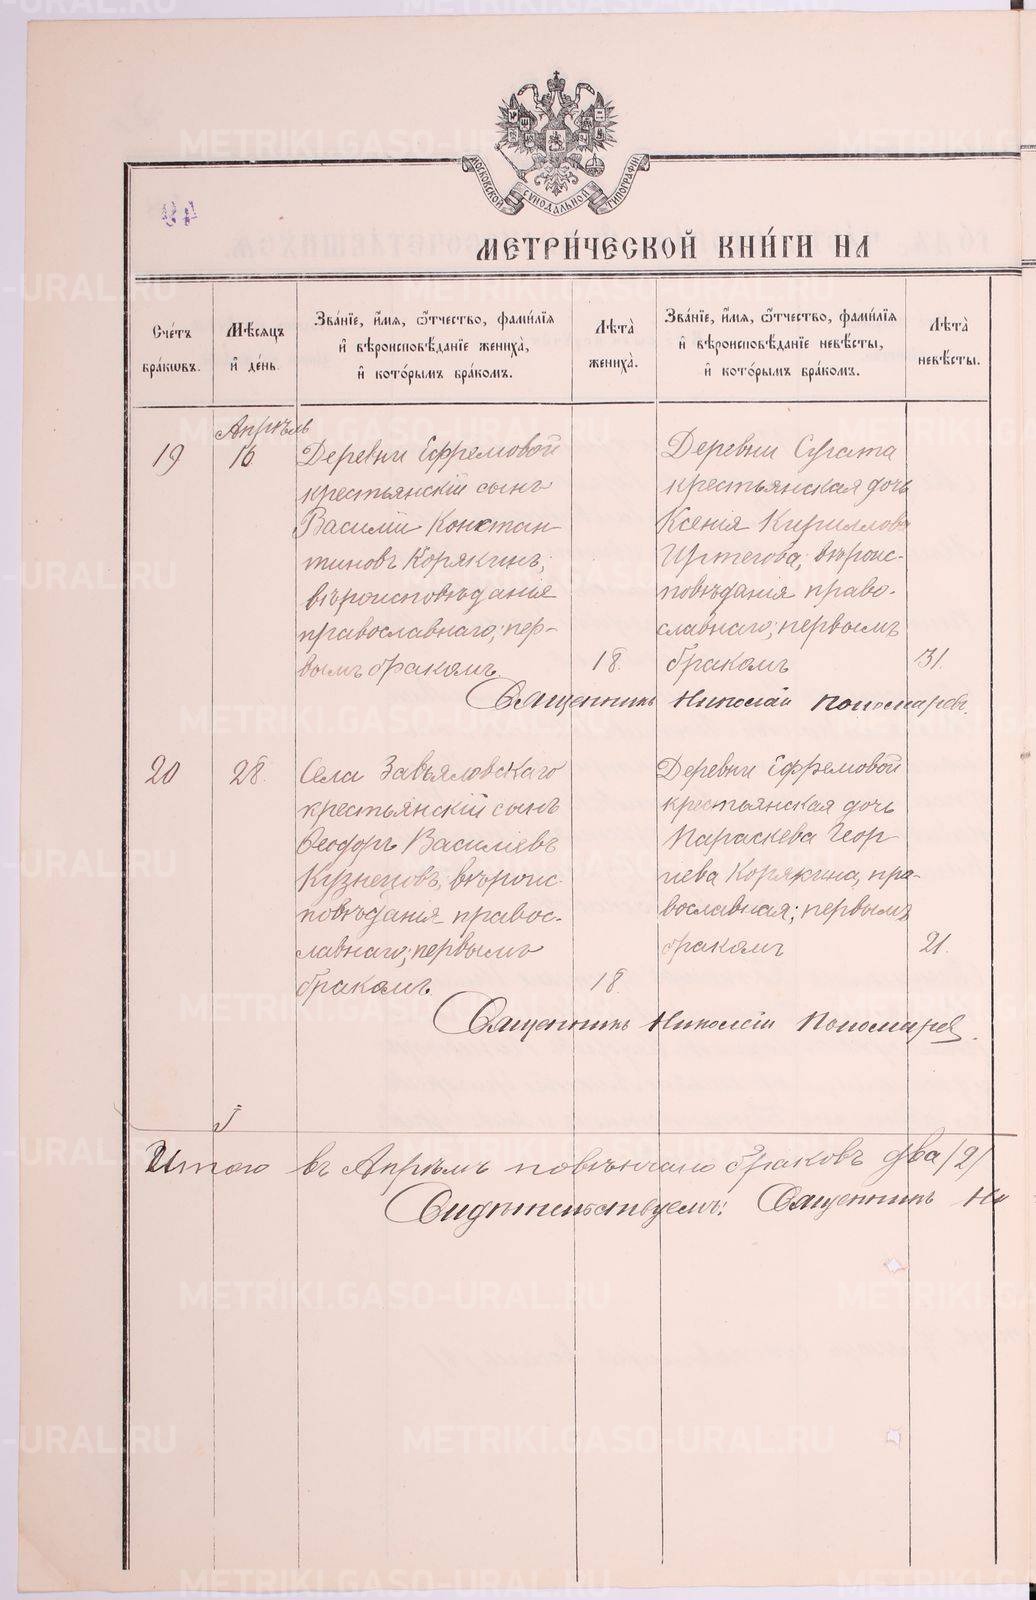 МОСКОВСКОЙ СУНОДАЛЬНОЙ ТИПОГРАФІИ
МЕТРИ́ЧЕСКОЙ КНИ́ГИ НА
Сче́тъ бра́кѡвъ.
Мѣ́сяцъ и҆ де́нь.
Зва́нїе, и҆́мя, ѻ҆́тчество, фами́лїя и҆ вѣроисповѣ́данїе жениха̀, и҆ кото́рымъ бра́комъ.
Лѣта̀ жениха̀.
Зва́нїе, и҆́мя, ѻ҆́тчество, фами́лїя и҆ вѣроисповѣ́данїе невѣ́сты, и҆ кото́рымъ бра́комъ.
Лѣта̀ невѣ́сты.
Апрѣль
19
16.
Деревни Ефремовой
крестьянскій сынъ
Василій Констан-
тиновъ Корякинъ;
вѣроисповѣданія
православнаго; пер-
вымъ бракомъ.
18.
Деревни
крестьянская дочь
Ксенія Кириллова
вѣроис-
повѣданія право-
славнаго; первымъ
бракомъ
31.
Священникъ Николай Пономаревъ.
20
28.
Села Завьяловскаго
крестьянскій сынъ
Ѳеодоръ Василіевъ
Кузнецовъ, вѣроис-
повѣданія правос-
лавнаго; первымъ
бракомъ.
18.
Деревни Ефремовой
крестьянская дочь
Параскева Геор-
гіева Корякина, пра-
вославная; первымъ
бракомъ
21.
Священникъ Николай Пономаревъ.
Итого въ Апрѣлѣ повѣнчано браковъ два /2/
Свидѣтельствуемъ: Священникъ Ни
METRIKI.GASO-URAL.RU